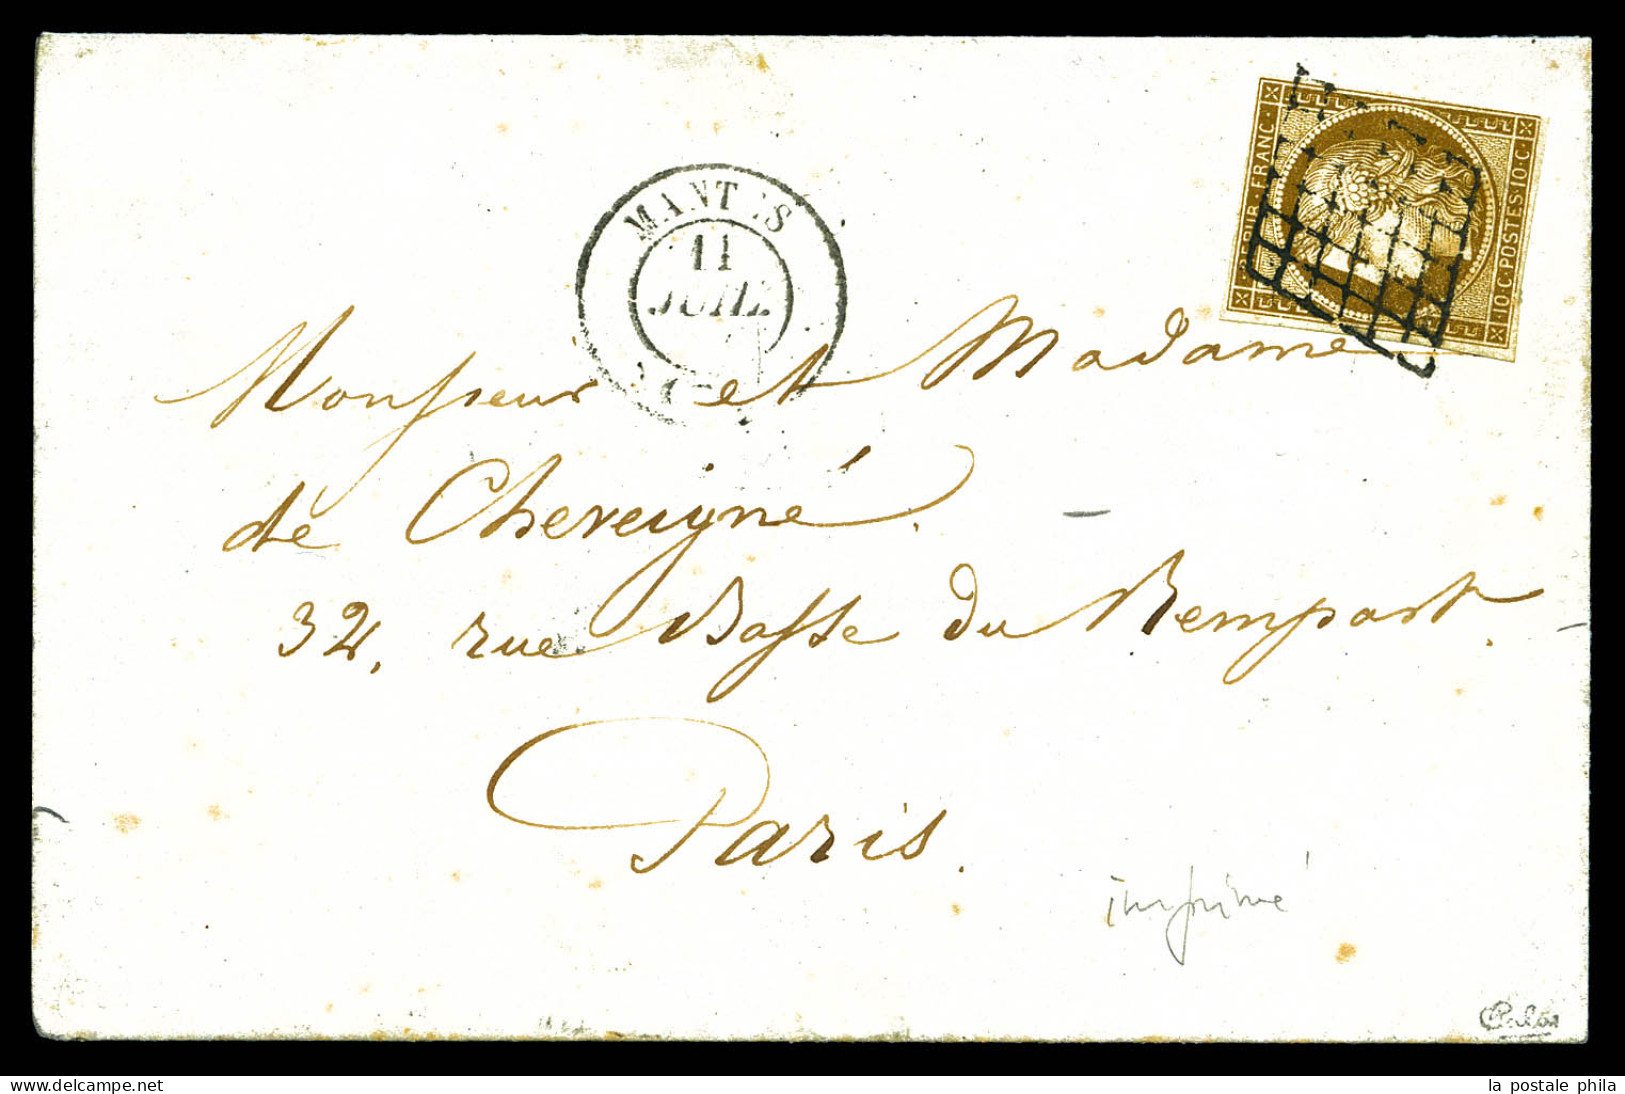 REPUB·FRANC·
10·C·POSTES·10·C·
MANTES
11
JUIL.
Monsieur et Madame
de Chereigné.
32, rue Basse du Rempart.
Paris.
imprimé
Calves
delcampe.net
la postale phila